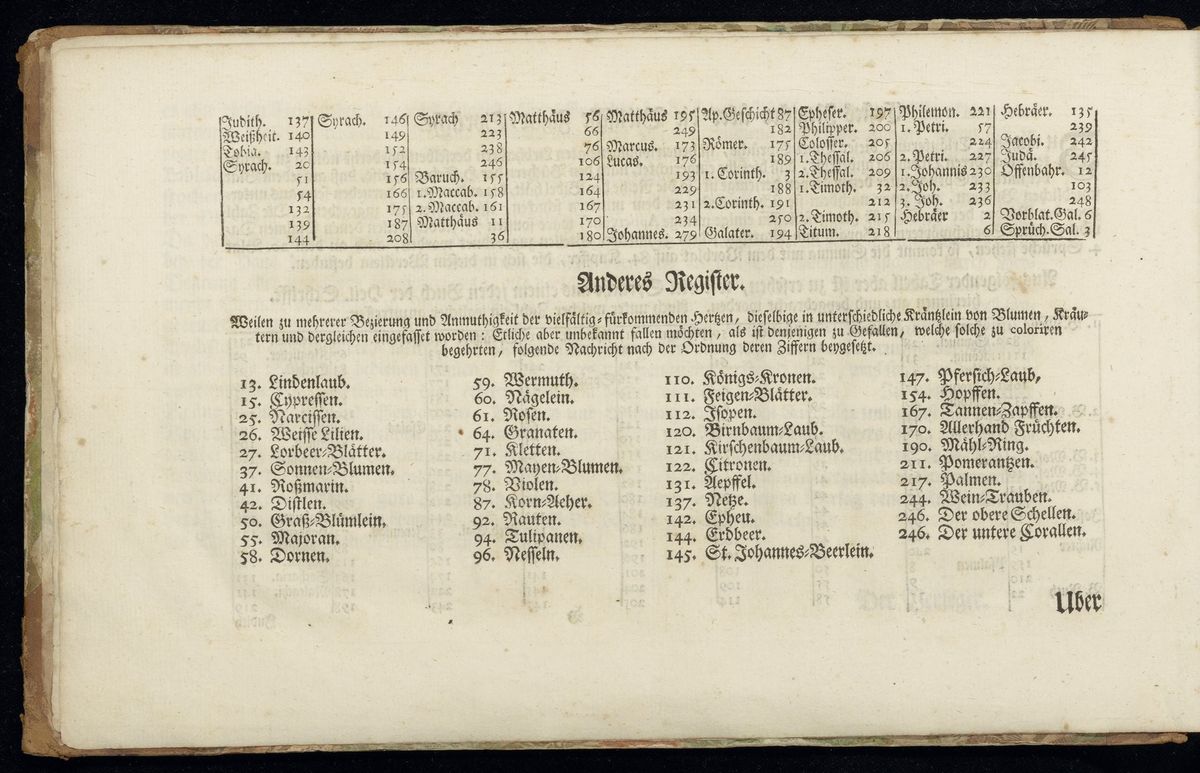 Judith. 137
Weißheit. 140
Tobia. 143
Syrach. 20
51
54
132
139
144
Syrach. 146
149
152
154
156
166
175
187
208
Syrach 213
223
238
246
Baruch. 155
1. Maccab. 158
2. Maccab. 161
Matthäus 11
36
Matthäus 56
66
76
106
124
164
167
170
180
Matthäus 195
249
Marcus. 173
Lucas. 176
193
229
231
234
Johannes. 279
Ap. Geschicht 87
182
Römer. 175
189
1. Corinth. 3
188
2. Corinth. 191
250
Galater. 194
Epheser. 197
Philipper. 200
Colosser. 205
1. Thessal. 206
2. Thessal. 209
1. Timoth. 32
212
2. Timoth. 215
Titum. 218
Philemon. 221
1. Petri. 57
224
2. Petri. 227
1. Johannis 230
2. Joh. 233
3. Joh. 236
Hebräer 2
6
Hebräer. 135
239
Jacobi. 242
Judä. 245
Offenbahr. 12
103
248
Vorblat. Gal. 6
Sprüch. Sal. 3
Anderes Register.
Weilen zu mehrerer Bezierung und Anmuthigkeit der vielfältig-fürkommenden Hertzen, dieselbige in unterschiedliche Kräntzlein von Blumen, Kräu-
tern und dergleichen eingefasset worden: Etliche aber unbekannt fallen möchten, als ist denjenigen zu Gefallen, welche solche zu coloriren
begehrten, folgende Nachricht nach der Ordnung deren Ziffern beygesetzt.
13. Lindenlaub.
15. Cypressen.
25. Narcissen.
26. Weisse Lilien.
27. Lorbeer-Blätter.
37. Sonnen-Blumen.
41. Roßmarin.
42. Distlen.
50. Graß-Blümlein.
55. Majoran.
58. Dornen.
59. Wermuth.
60. Nägelein.
61. Rosen.
64. Granaten.
71. Kletten.
77. Mayen-Blumen.
78. Violen.
87. Korn-Aeher.
92. Rauten.
94. Tulipanen.
96. Nesseln.
110. Königs-Kronen.
111. Feigen-Blätter.
112. Isopen.
120. Birnbaum-Laub.
121. Kirschenbaum-Laub.
122. Citronen.
131. Aepffel.
137. Netze.
142. Epheu.
144. Erdbeer.
145. St. Johannes-Beerlein.
147. Pfersich-Laub,
154. Hopffen.
167. Tannen-Zapffen.
170. Allerhand Früchten.
190. Mähl-Ring.
211. Pomerantzen.
217. Palmen.
244. Wein-Trauben.
246. Der obere Schellen.
246. Der untere Corallen.
Uber